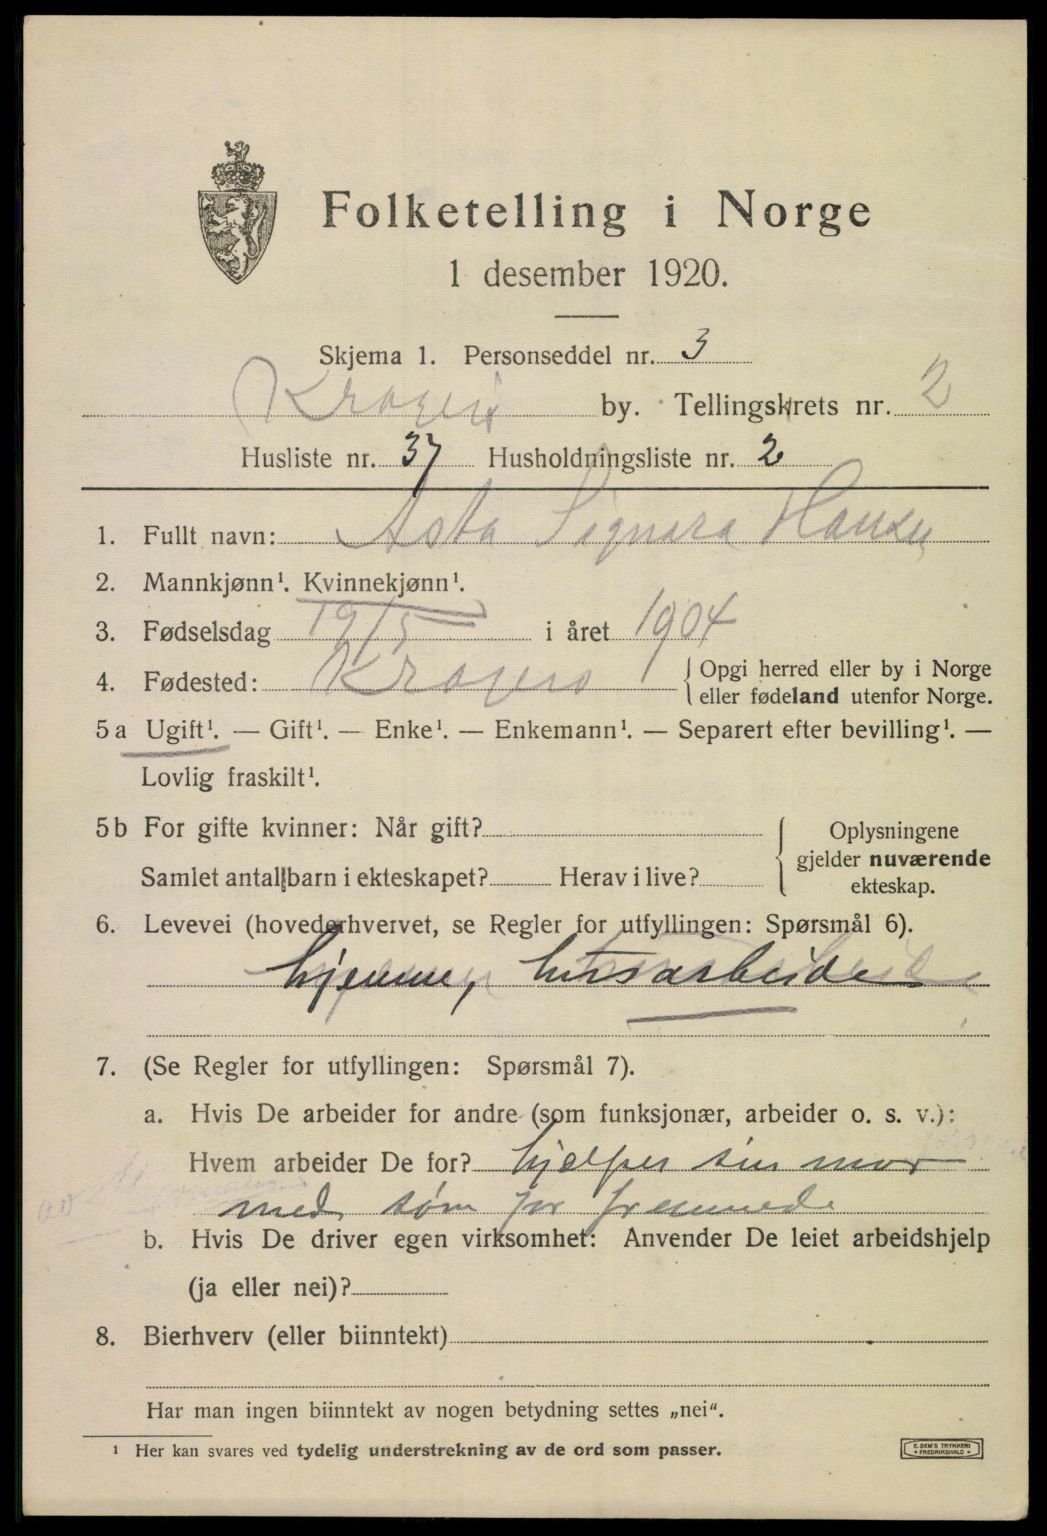 Folketelling i Norge
1 desember 1920.
Skjema 1. Personseddel nr. 3
Kragerø by. Tellingskrets nr. 2
Husliste nr. 37 Husholdningsliste nr. 2
1. Fullt navn: Asta Signora Hansen
2. Mannkjønn¹. Kvinnekjønn¹.
3. Fødselsdag 19/5 i året 1904
4. Fødested: Kragerø { Opgi herred eller by i Norge
eller fødeland utenfor Norge.
5 a Ugift¹. — Gift¹. — Enke¹. — Enkemann¹. — Separert efter bevilling¹. —
Lovlig fraskilt¹.
5 b For gifte kvinner: Når gift? Oplysningene
gjelder nuværende
Samlet antal barn i ekteskapet? Herav i live? ekteskap.
6. Levevei (hovederhvervet, se Regler for utfyllingen: Spørsmål 6).
hjemme, husarbeide
7. (Se Regler for utfyllingen: Spørsmål 7).
a. Hvis De arbeider for andre (som funksjonær, arbeider o. s. v.):
Hvem arbeider De for? hjelper sin mor
med søm for fremmede
b. Hvis De driver egen virksomhet: Anvender De leiet arbeidshjelp
(ja eller nei)?
8. Bierhverv (eller biinntekt)
Har man ingen biinntekt av nogen betydning settes „nei“.
¹ Her kan svares ved tydelig understrekning av de ord som passer.
E. SEM'S TRYKKERI
FREDRIKSHALD